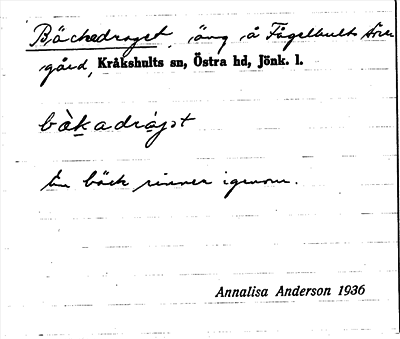 Bäckadraget, äng å Fågelhults Söre-
gård, Kråkshults sn, Östra hd, Jönk. l.
bækadrájət
En bäck rinner igenom.
Annalisa Anderson 1936